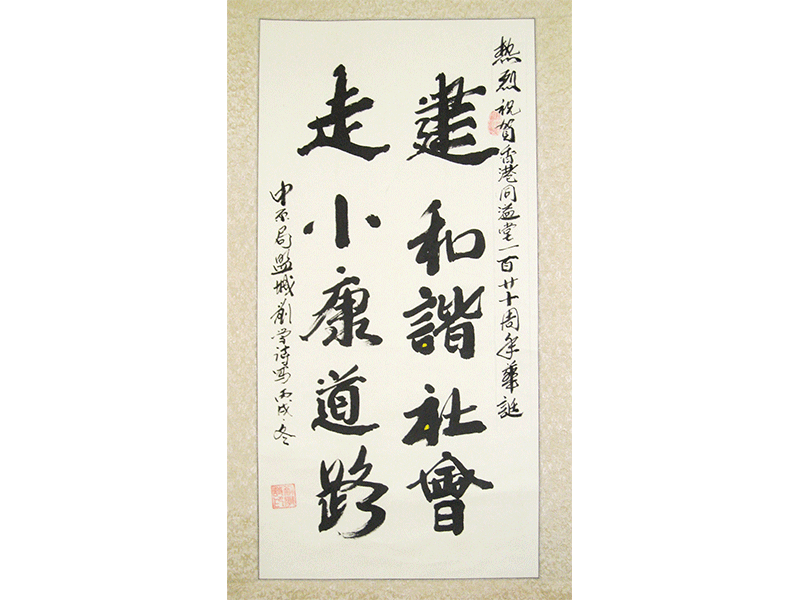 熱烈祝賀香港同溢堂一百廿十周年華誕
建和諧社會
走小康道路
中原局城劉学诗写丙戌冬